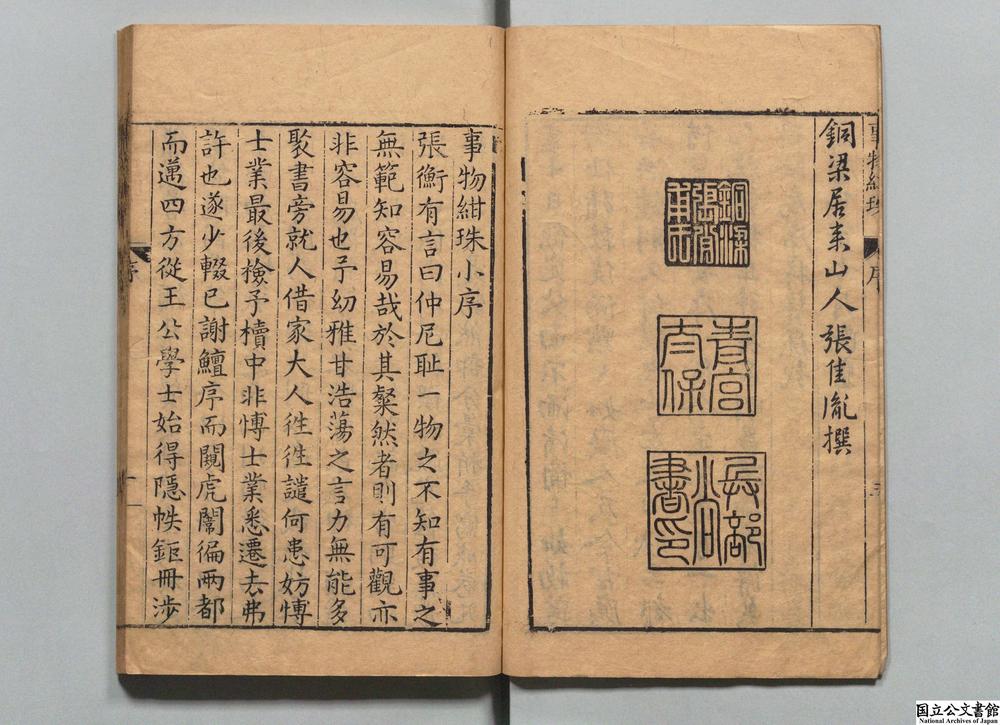 事物紺珠
序
銅梁居來山人張佳胤撰
銅梁
張佳
胤
青宮
太保
兵部
尚
書印
事物紺珠小序
張衡有言曰仲尼耻一物之不知有事之
無範知容易哉於其粲然者則有可觀亦
非容易也予幼雅甘浩蕩之言力無能多
聚書旁就人借家大人徃徃譴何患妨愽
士業最後撿予櫝中非愽士業悉遷去弗
許也遂少輟已謝鱣序而闚虎闈徧兩都
而邁四方從王公學士始得隱帙鉅冊渉
序
十一
国立公文書館
National Archives of Japan